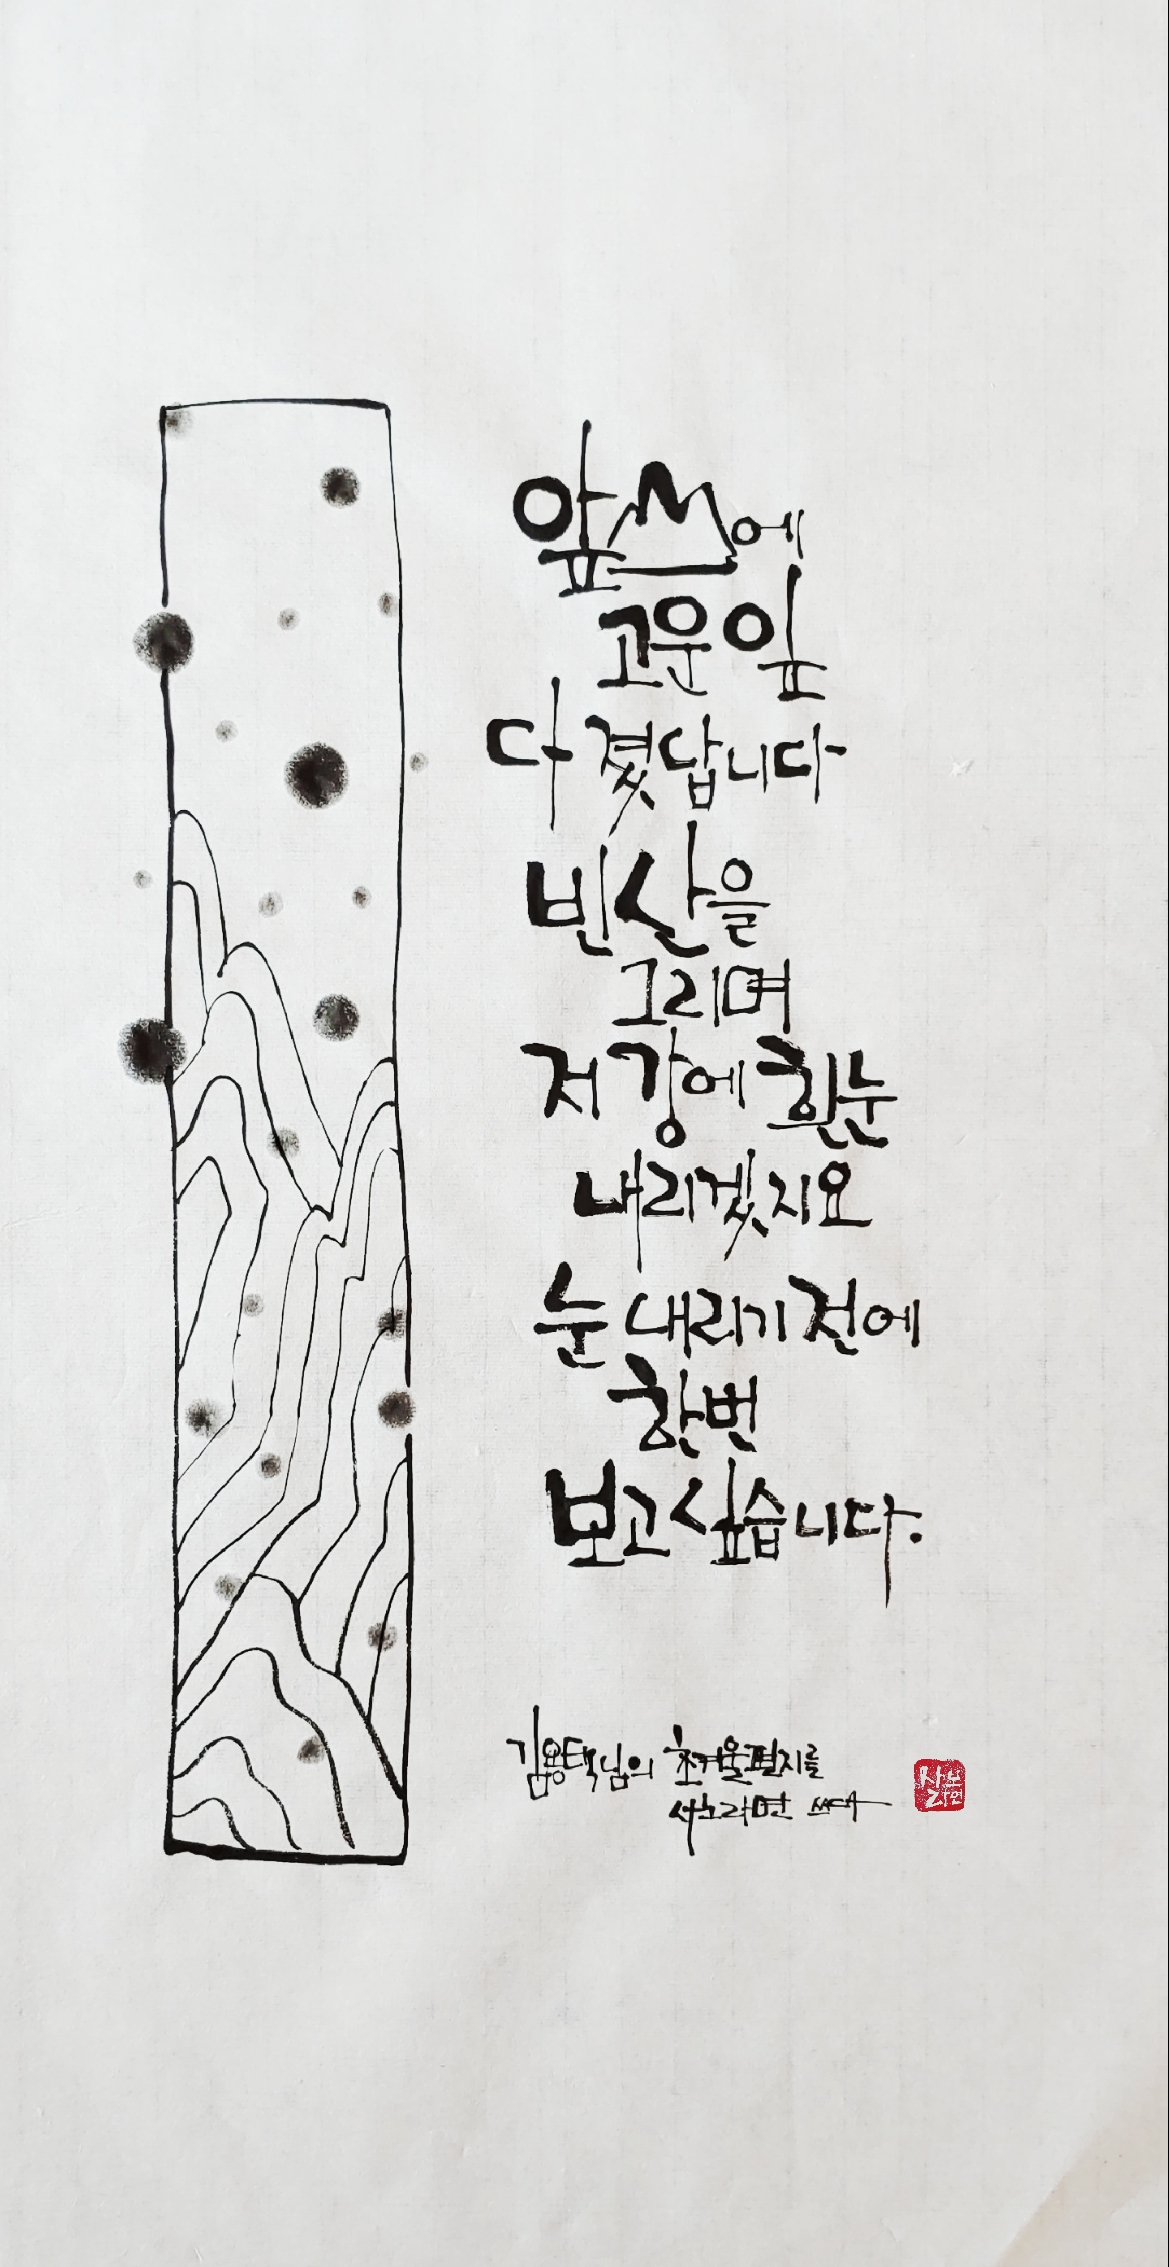 앞山에
고운 잎
다 졌답니다
빈 산을
그리며
저 강에 흰눈
내리겠지요
눈 내리기 전에
한번
보고 싶습니다.
김용택님의 초겨울편지를
사노라면 쓰다